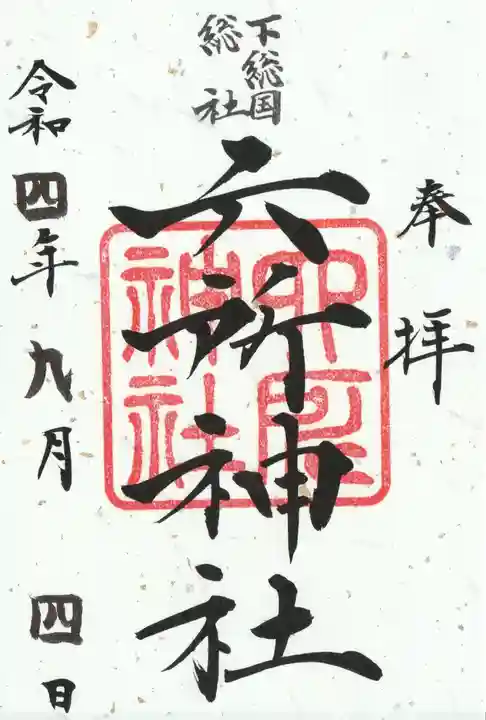 奉拝
下総国
総社
六所神社
六所神社
令和四年九月四日